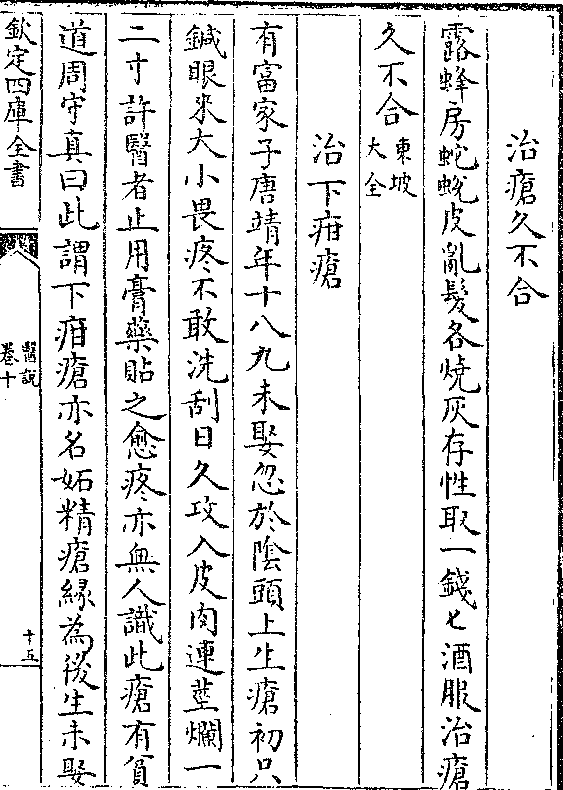 治瘡久不合
露蜂房蛇蛻皮亂髮各燒灰存性取一錢匕酒服治瘡
久不合東坡大全
治下疳瘡
有富家子唐靖年十八九未娶忽於陰頭上生瘡初只
鍼眼來大小畏疼不敢洗刮日久攻入皮肉連莖爛一
二寸許醫者止用膏藥貼之愈疼亦無人識此瘡有貧
道周守真曰此謂下疳瘡亦名妬精瘡緣為後生未娶
欽定四庫全書
醫説
卷十
十五